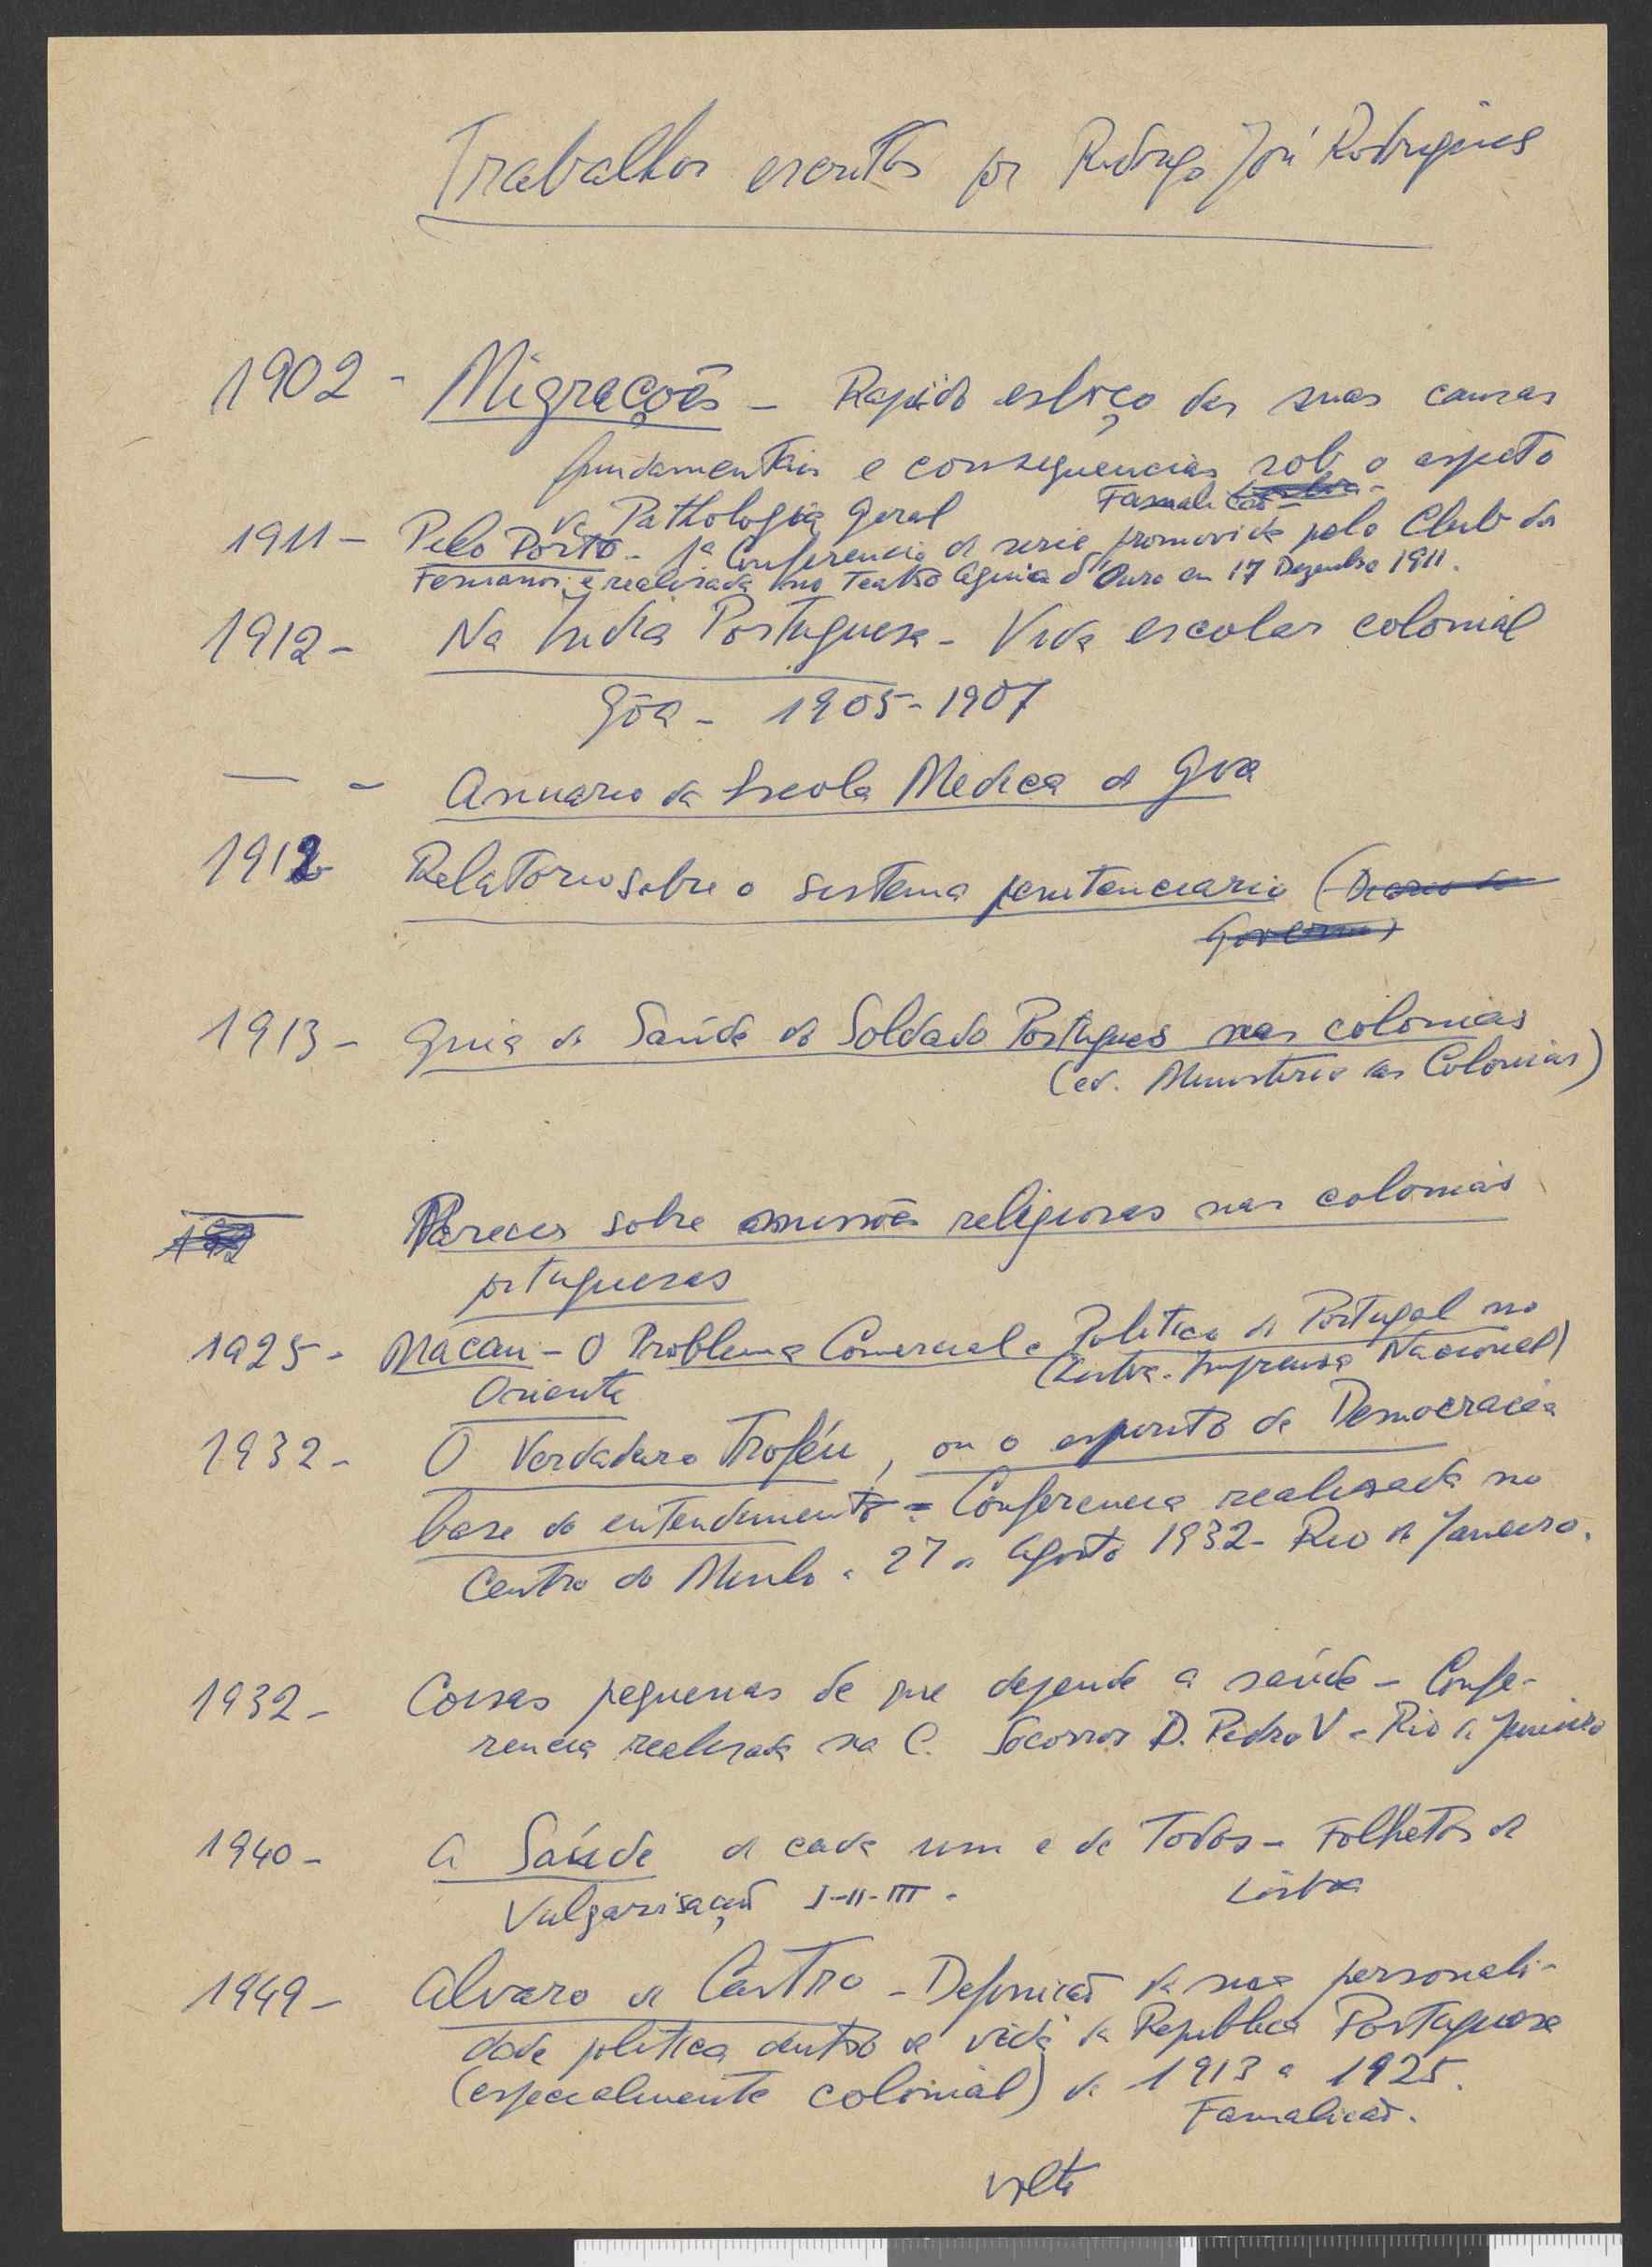 Trabalhos escritos por Rodrigo José Rodrigues
1902 - Migrações - Rapido esboço das suas causas
fundamentais e consequencias sob o aspeto
da Pathologia Geral Famalicão -
1911 - Pelo Porto - 1ª Conferencia da serie promovida pelo Club dos
Fenianos e realisada no Teatro Aguia d'Ouro em 17 Dezembro 1911.
1912 - Na India Portuguesa - Vida escolar colonial
Gôa - 1905-1907
— - Anuario da Escola Medica de Goa
1912 Relatorio sobre o sistema penitenciario (Diario do
Governo)
1913 - Guia da Saúde do Soldado Português nas colonias
(ed. Ministerio das Colonias)
— Parecer sobre missões religiosas nas colonias
portuguesas
1925 - Macau - O Problema Comercial e Politico de Portugal no
Oriente (Lisboa. Imprensa Nacional)
1932 - O Verdadeiro Troféu, ou o espirito da Democracia
base do entendimento - Conferencia realisada no
Centro do Minho a 27 de Agosto 1932 - Rio de Janeiro.
1932 - Coisas pequenas de que depende a saúde - Confe-
rencia realisada na C. Socorros D. Pedro V - Rio de Janeiro
1940 - A Saúde de cada um e de Todos - Folhetos de
Vulgarisação I-II-III - Lisboa
1949 - Alvaro de Castro - Definicão da sua personali-
dade politica dentro da vida da Republica Portuguesa
(especialmente colonial) de 1913 a 1925.
Famalicão.
volte